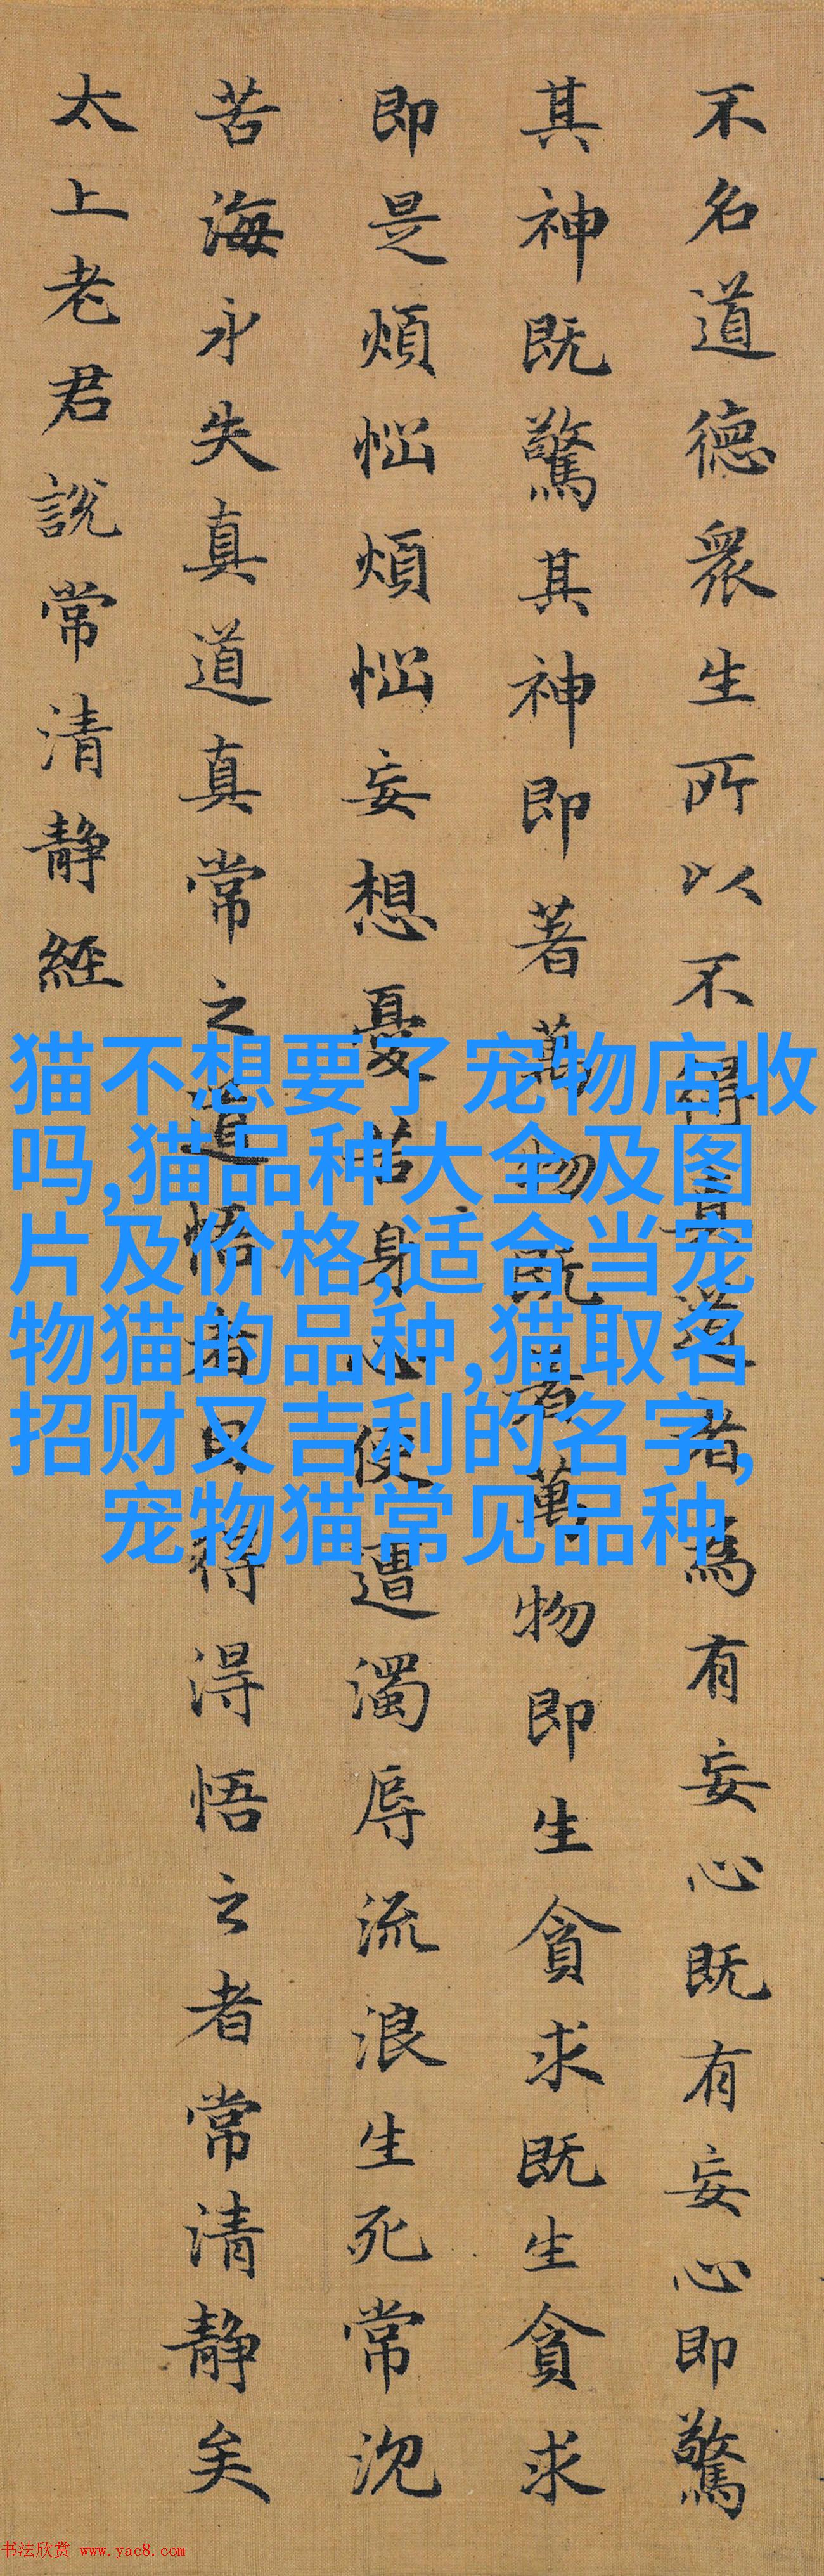 不名道德衆生所以不得真道者為有妄心既有妄心即驚
其神既驚其神即著萬物既著萬物即生貪求既生貪求
即是煩惱煩惱妄想憂苦身心便遭濁辱流浪生死常沉
苦海永失真道真常之道悟者自得淂悟之者常清静矣
太上老君說常清静經
猫不想要了宠物店收
吗,猫品种大全及图
片及价格,适合当宠
物猫的品种,猫取名
招财又吉利的名字,
宠物猫常见品种
书法欣赏 www.yac8.com